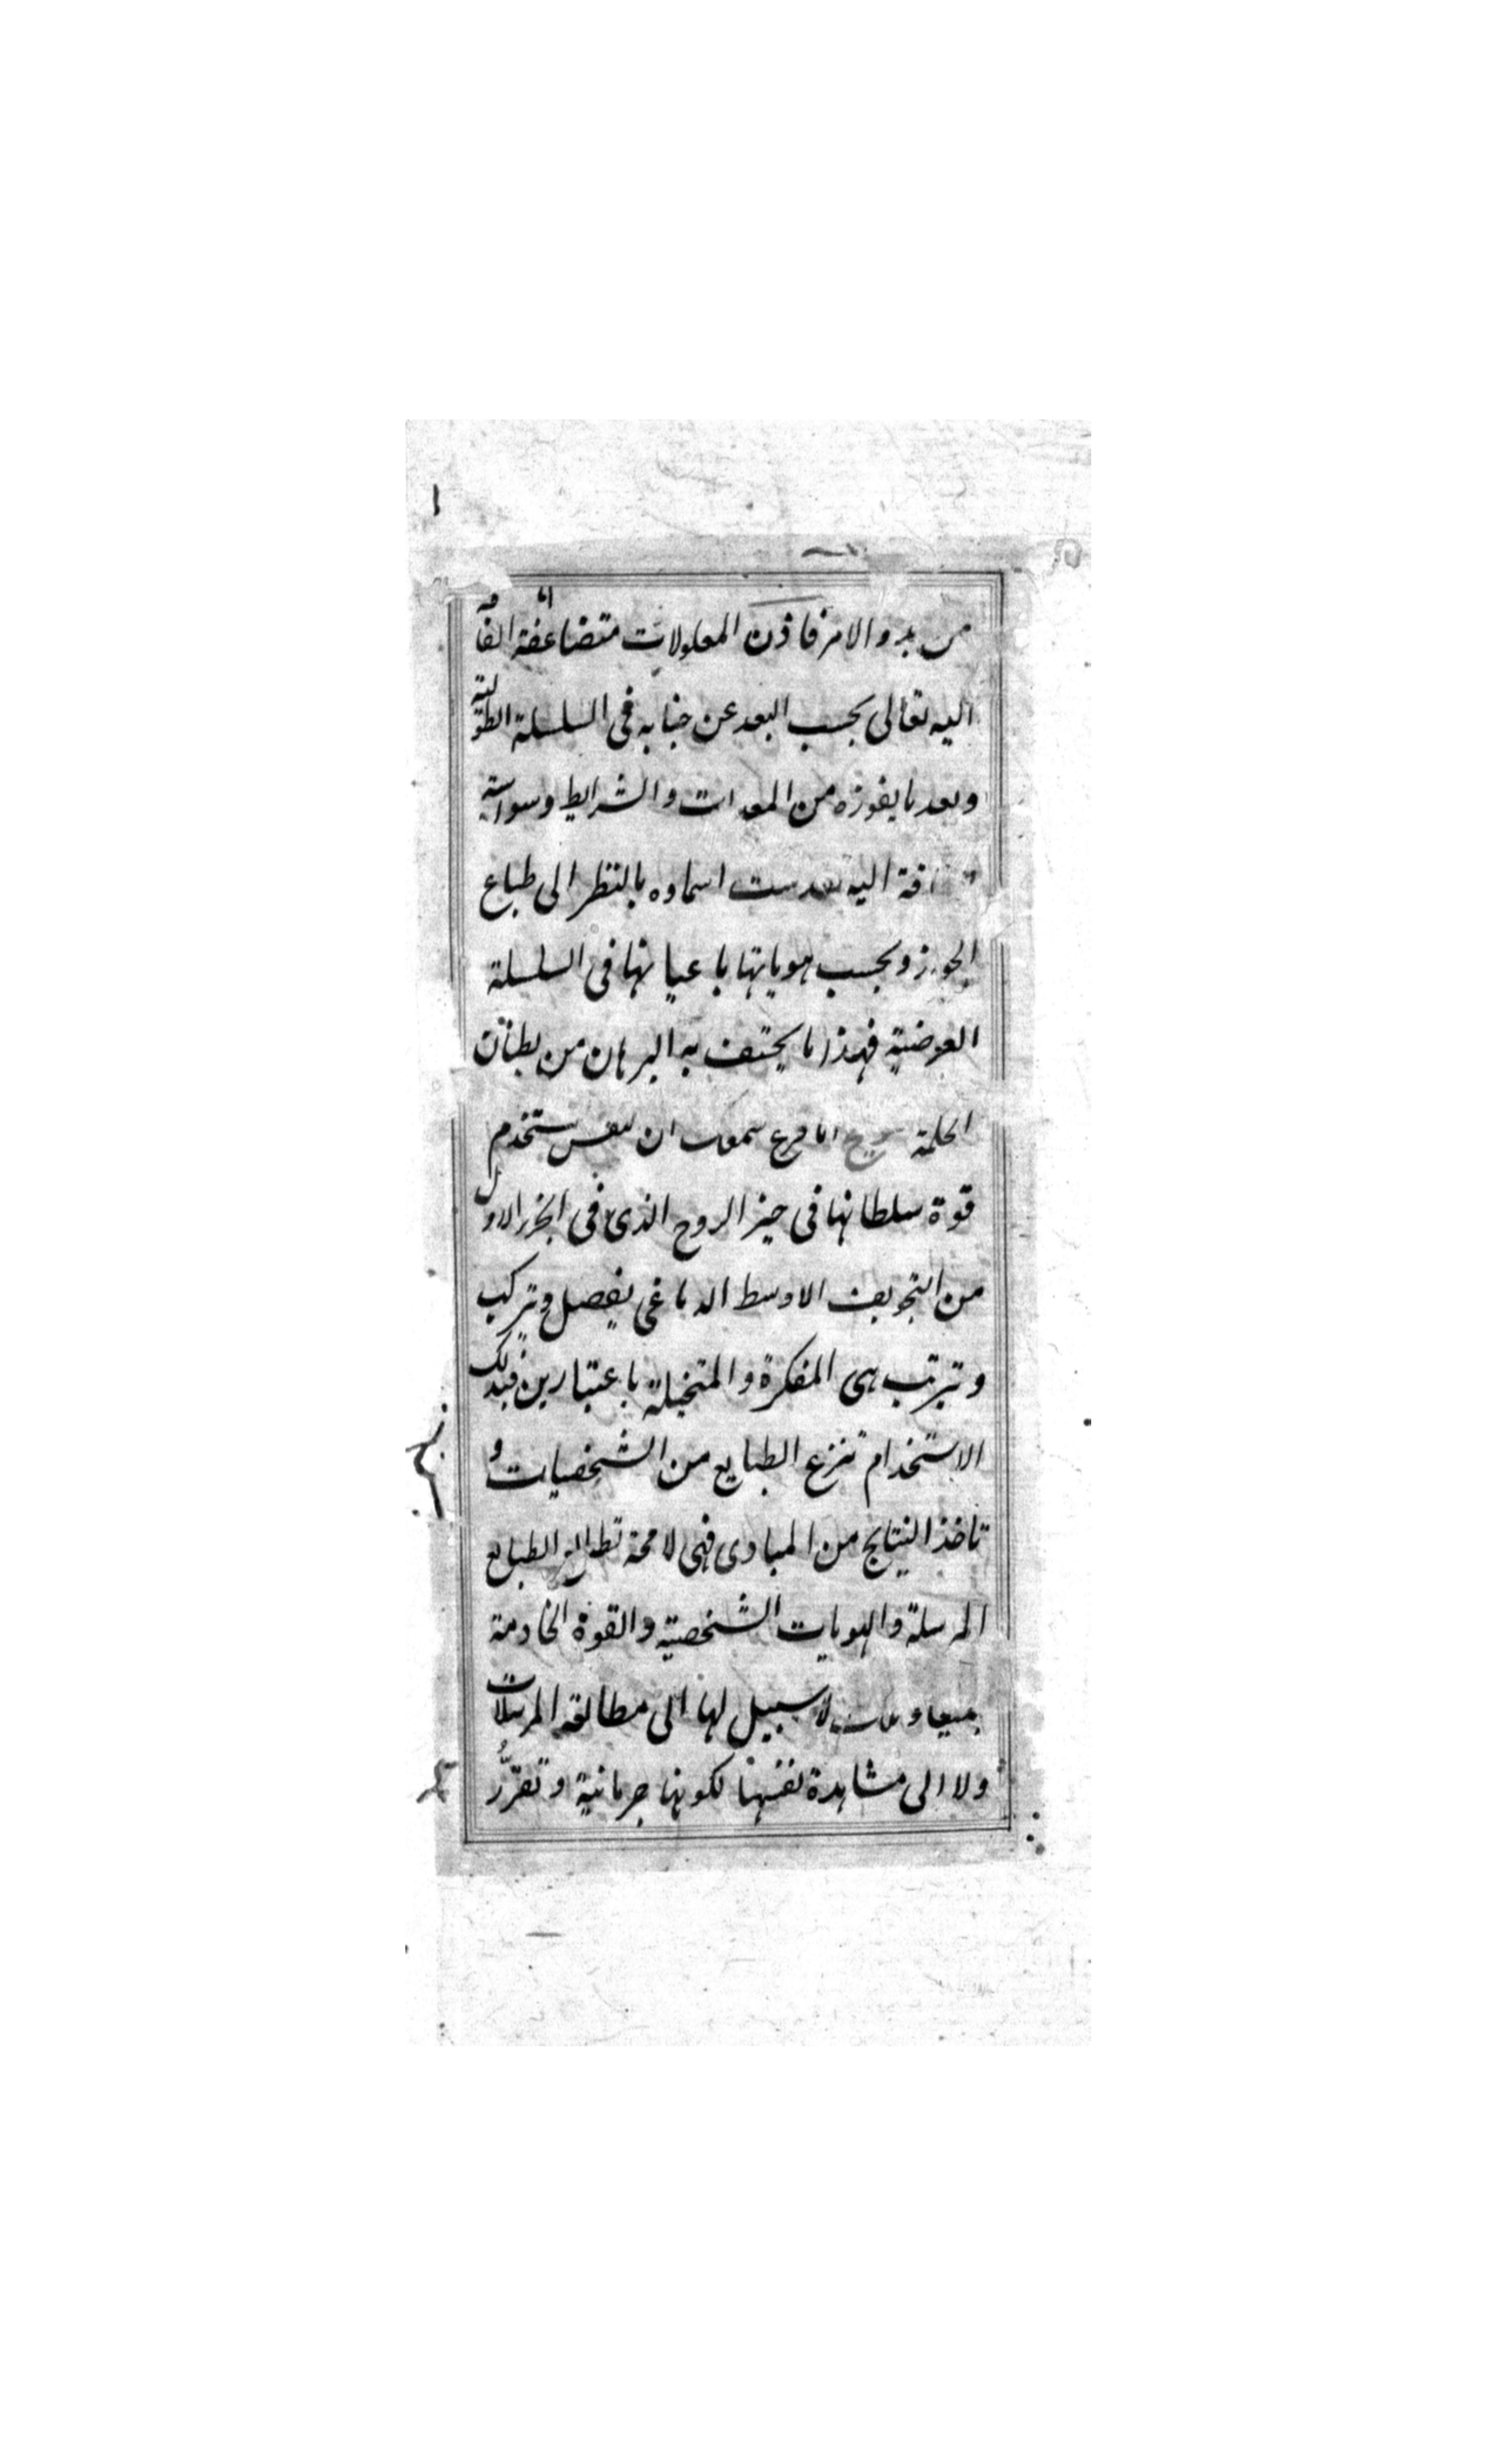 من بدو الامر فاذن المعلولات متضاعفة الفاقة
اليه تعالى بحسب البعد عن جنابه فى السلسلة الطولية
وبعد ما يفوزه من المعدات والشرايط وسواسية
اليه اسماوه بالنظر الى طباع
الجواز وبحسب هوياتها باعيانها فى السلسلة
العرضية فهذا ما يحتف به البرهان من بطنان
الحكمة اما قرع سمعك ان النفس يستخدم
قوة سلطانها فى حيز الروح الذى فى الجزء الاول
من التجويف الاوسط الدماغى يفصل وتركب
وترتب هى المفكرة والمتخيلة باعتبارين فبذلك
الاستخدام تنزع الطبايع من الشخصيات و
تاخذ النتايج من المبادى فهى لا محة تطالع الطبايع
المرسلة والهويات الشخصية والقوة الخادمة
لا سبيل لها الى مطالعة المرسلات
ولا الى مشاهدة نفسها لكونها جرمانية وتقرر